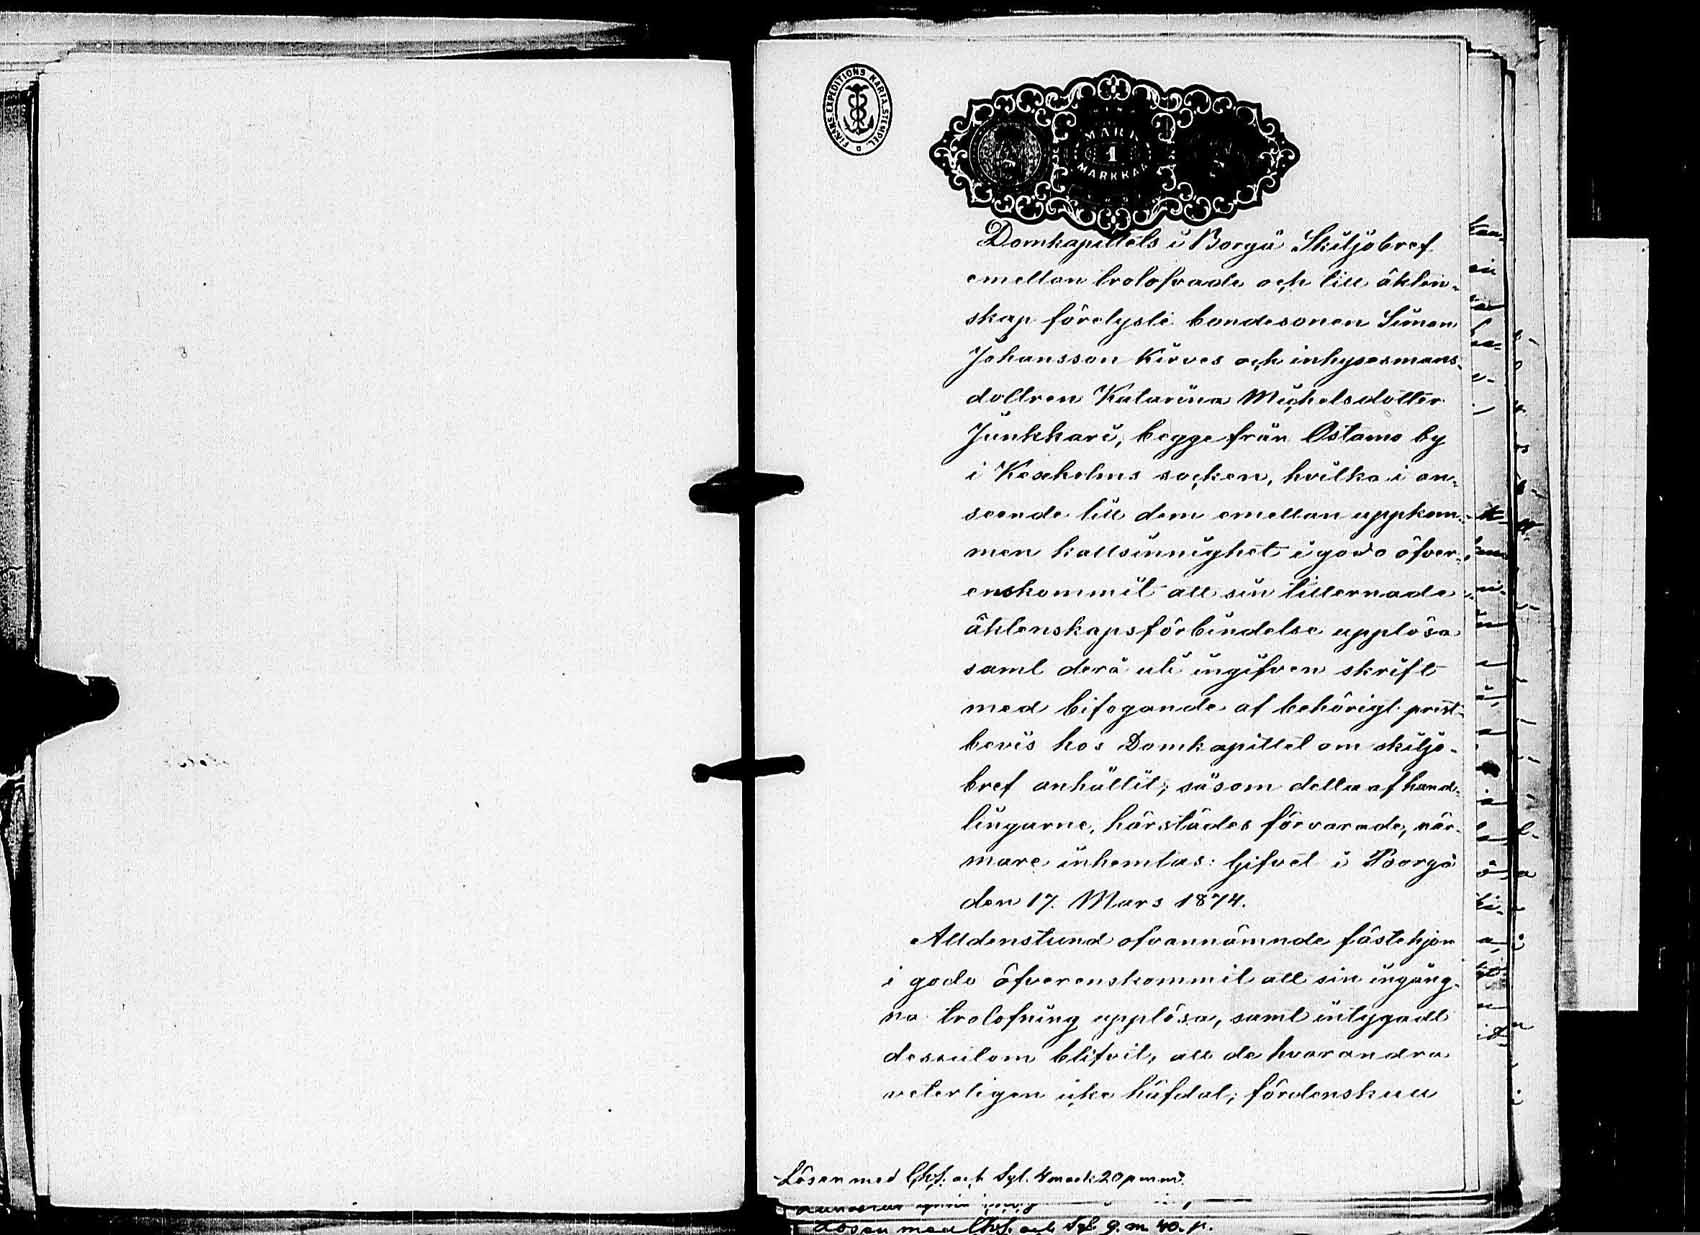 FINSKA EXPEDITIONS KARTA STEMPEL
MARK
1
MARKKAA
Domkapitlets i Borgå Skiljobref
emellan trolofvade och till äkten-
skap förelyste bondesonen Simon
Johansson Kirves och inhysesmans-
dottren Katarina Michelsdotter
Junkkari, begge från Ostamo by
i Kexholms socken, hvilka i an-
seende till dem emellan uppkom-
men kallsinnighet i godo öfver-
enskommit att sin tillernade
äktenskapsförbindelse upplösa
samt derå uti ingifven skrift
med bifogande af behörigt prest-
bevis hos Domkapitlet om skiljo-
bref anhållit; såsom detta af hand-
lingarne, härstädes förvarade, när-
mare inhemtas: Gifvet i Borgå
den 17. Mars 1874.
Alldenstund ofvannämnde fästehjon
i godo öfverenskommit att sin ingång-
na trolofning upplösa, samt intygadt
dessutom blifvit, att de hvarandra
veterligen icke häfdat; fördenskull
Lösen med Chs. och Sgl. 4 mark 20 p:nni
Lösen med Chs. och Sgl. 9. m. 40. p.